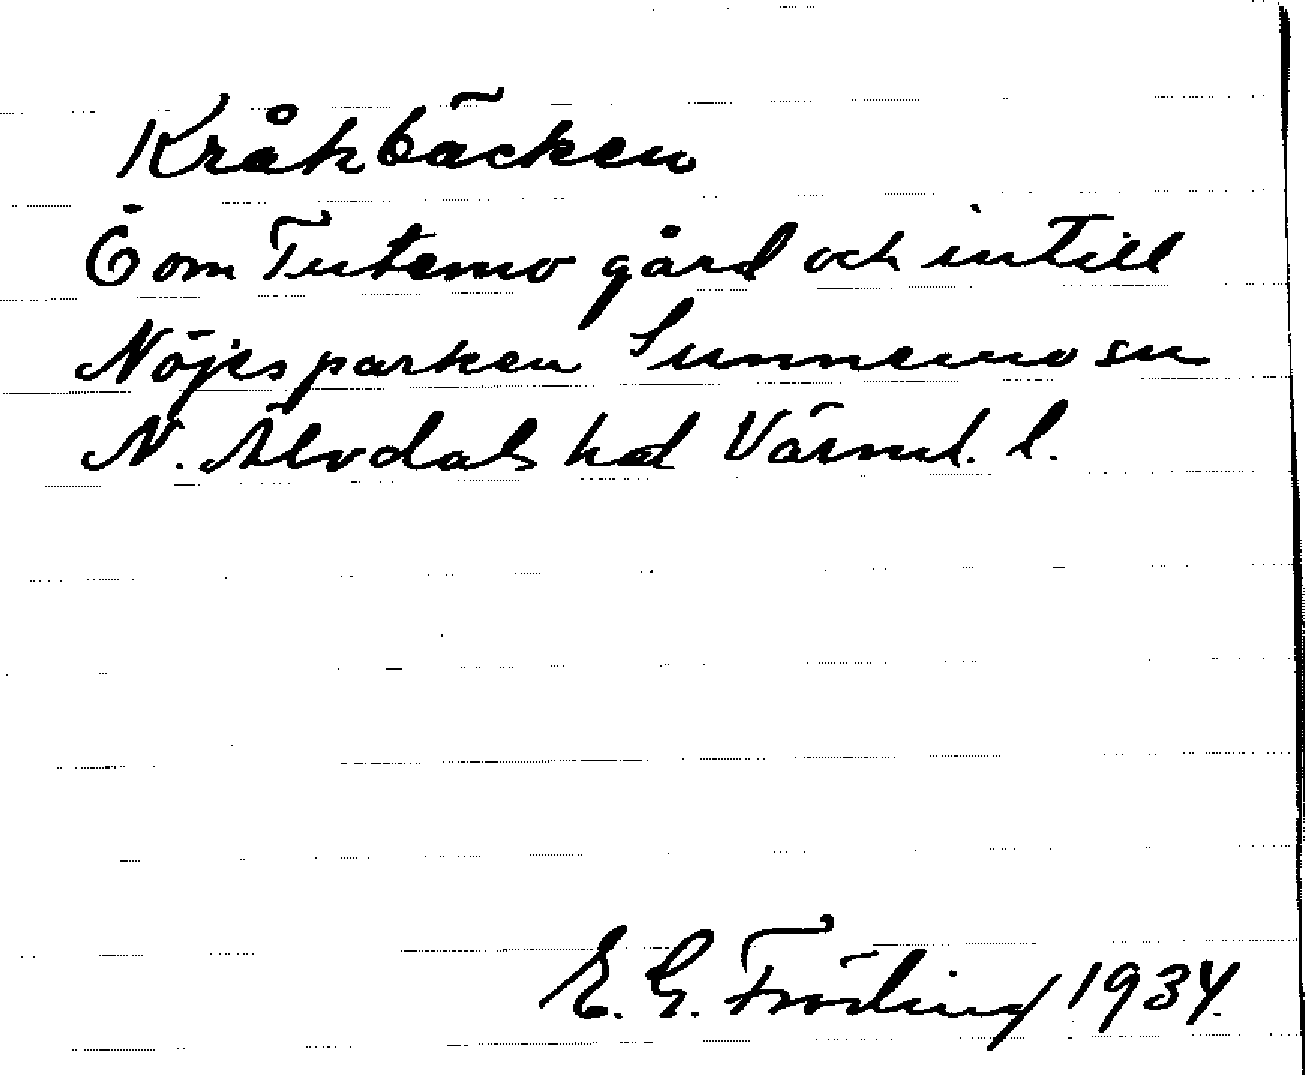 Kråkbäcken
Ö om Tutemo gård och intill
Nöjesparken Sunnemo sn
N. Älvdals hd Värml. l.
E. G. Fröling 1934